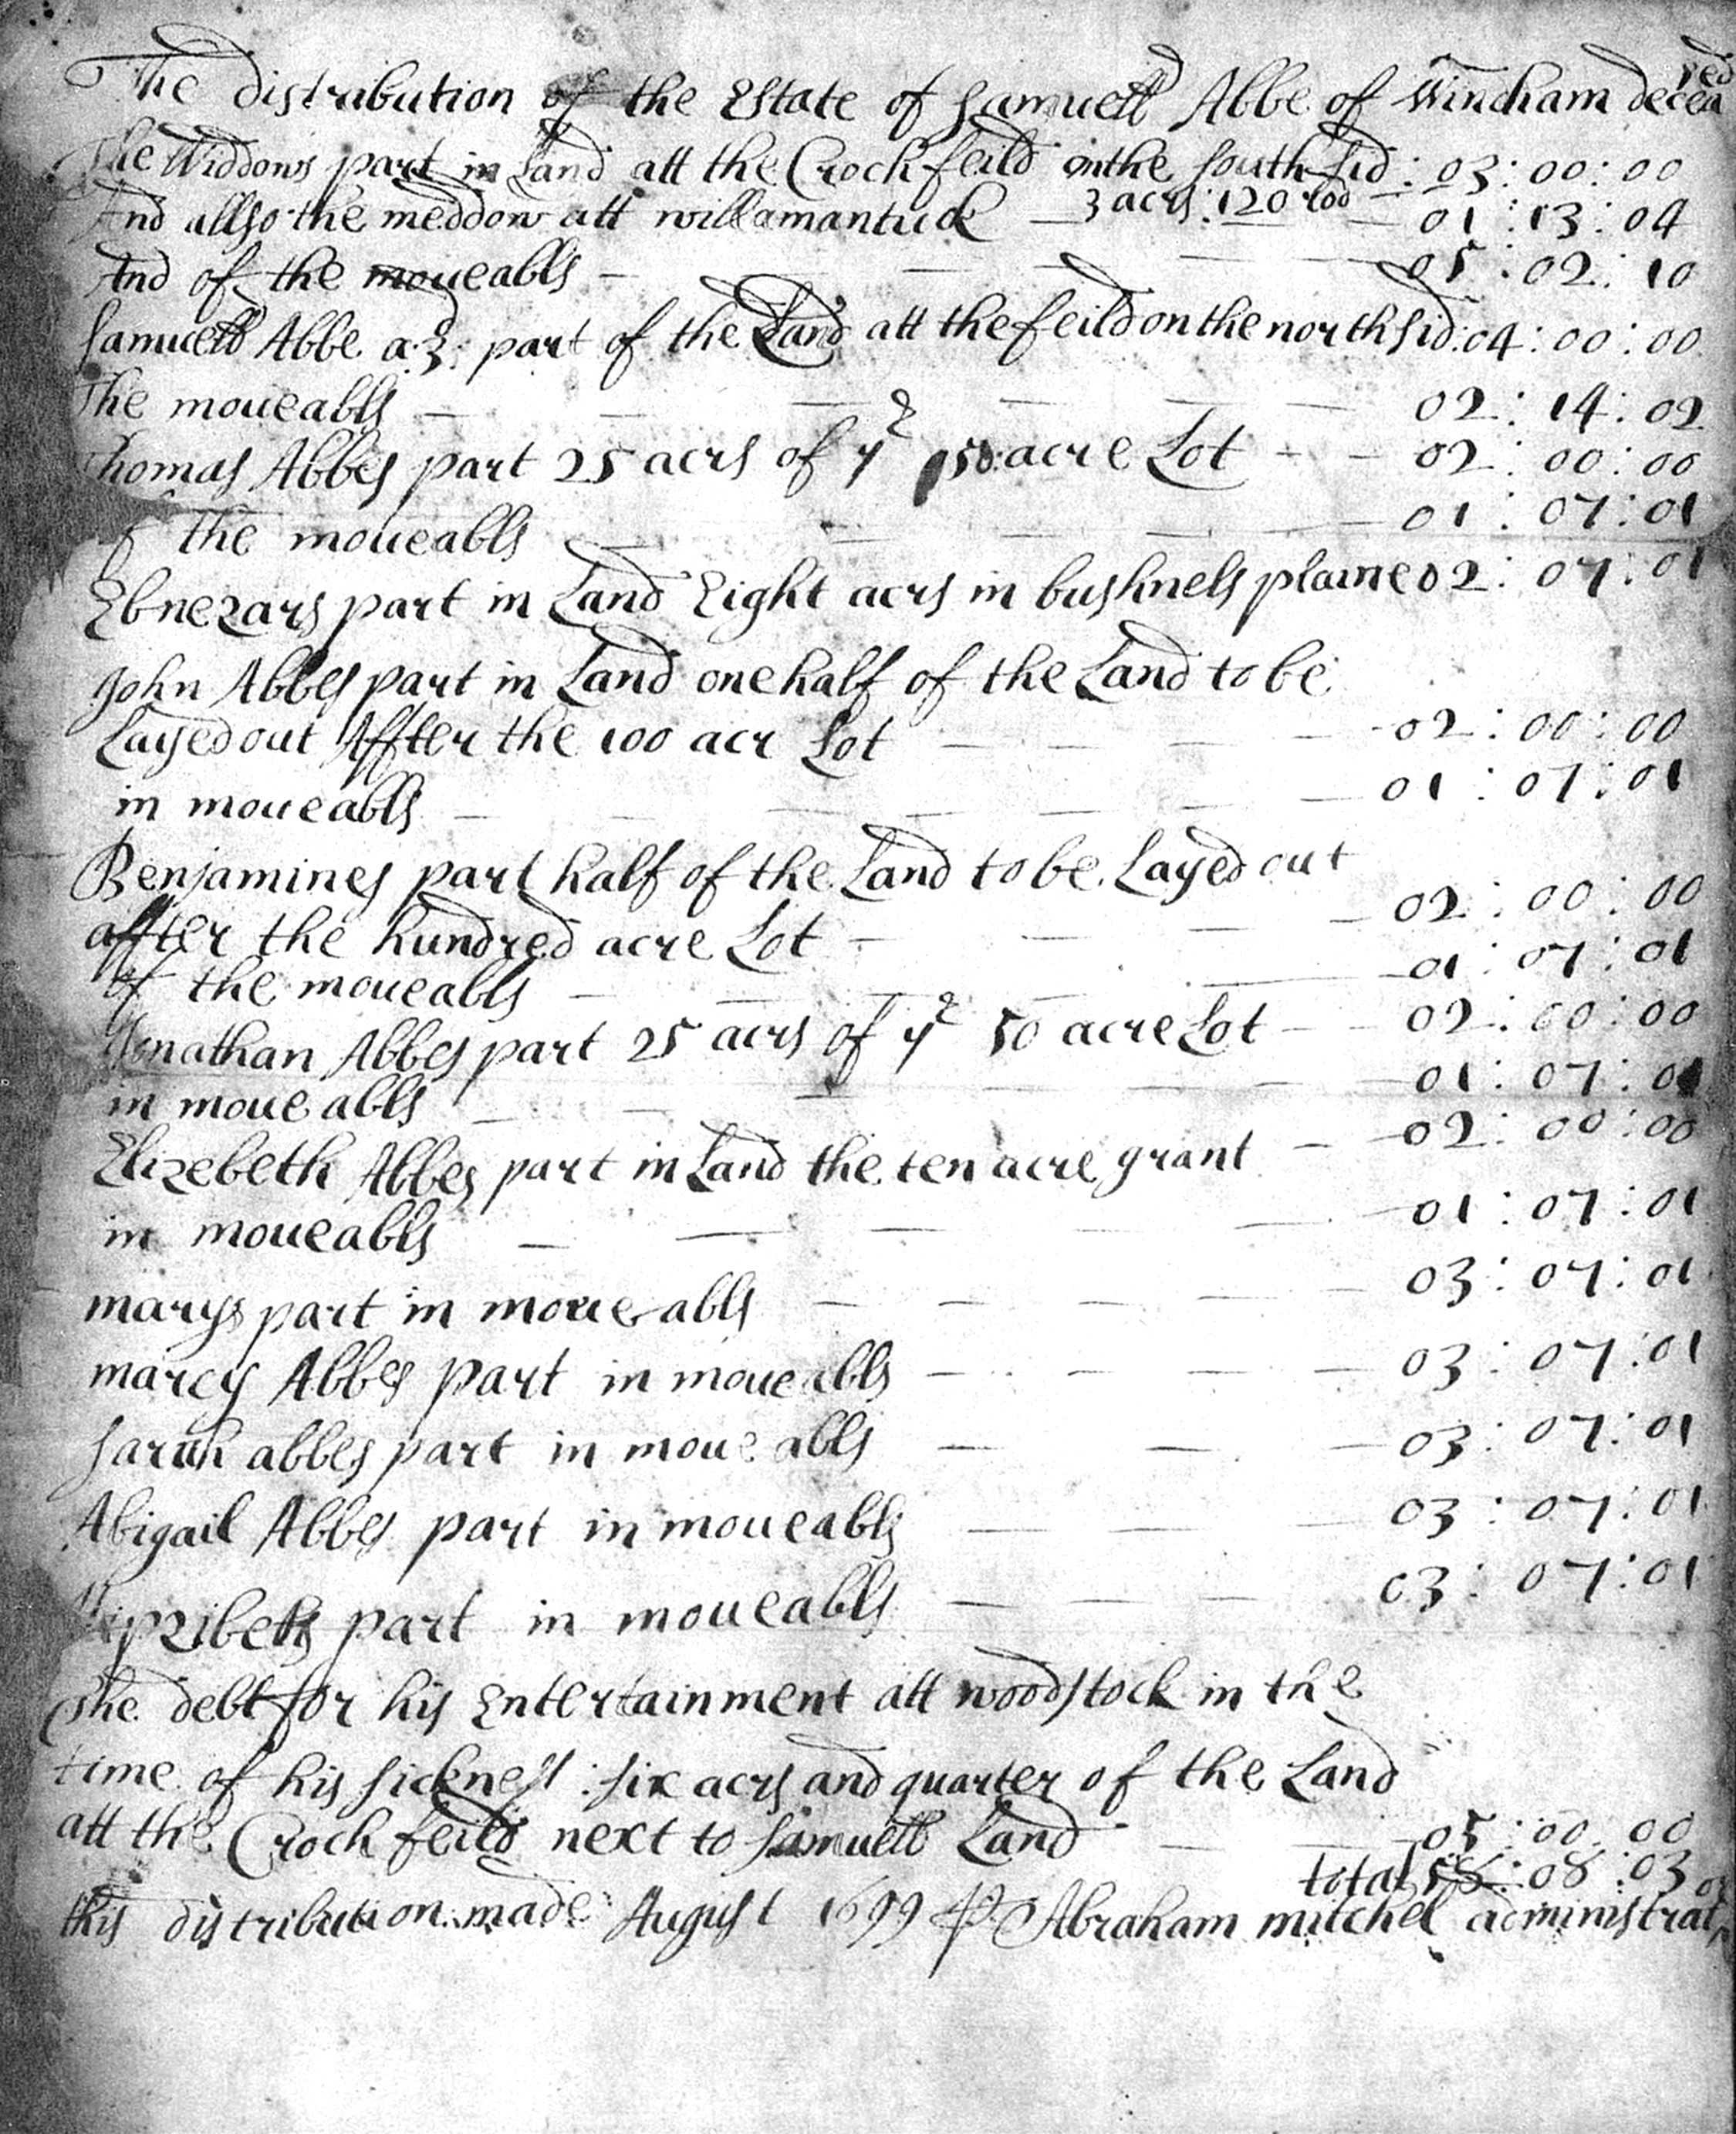 The distribution of the Estate of Samuell Abbe of Windham deceased
The Widdows part in Land att the Crochfeild on the south sid : 03 : 00 : 00
And allso the meddow att willamantuck — 3 acrs : 120 rod — 01 : 13 : 04
And of the moueabls — 05 : 02 : 10
Samuell Abbe a 3 : part of the Land att the feild on the north sid : 04 : 00 : 00
The moueabls — 02 : 14 : 02
Thomas Abbes part 25 acrs of ye 50 acre Lot - - 02 : 00 : 00
of the moueabls — 01 : 07 : 01
Ebnezars part in Land Eight acrs in bushnels plaine 02 : 07 : 01
John Abbes part in Land one half of the Land to be
Layed out Affter the 100 acr Lot — 02 : 00 : 00
in moueabls — 01 : 07 : 01
Benjamines part half of the Land to be Layed out
affter the hundred acre Lot — 02 : 00 : 00
of the moueabls — 01 : 07 : 01
Jonathan Abbes part 25 acrs of ye 50 acre Lot — 02 : 00 : 00
in moueabls — 01 : 07 : 01
Elizebeth Abbes part in Land the ten acre grant — 02 : 00 : 00
in moueabls — 01 : 07 : 01
marys part in moueabls — 03 : 07 : 01
marcy Abbes part in moueabls — 03 : 07 : 01
Sarah abbes part in moueabls — 03 : 07 : 01
Abigail Abbes part in moueabls — 03 : 07 : 01
Hipzibeths part in moueabls — 03 : 07 : 01
The debt for his Entertainment att woodstock in the
time of his sickness : six acrs and quarter of the Land
att the Croch feild next to Samuell Land — 05 : 00 : 00
total 58 : 08 : 03
this distribution made August 1699 P Abraham mitchel administrator